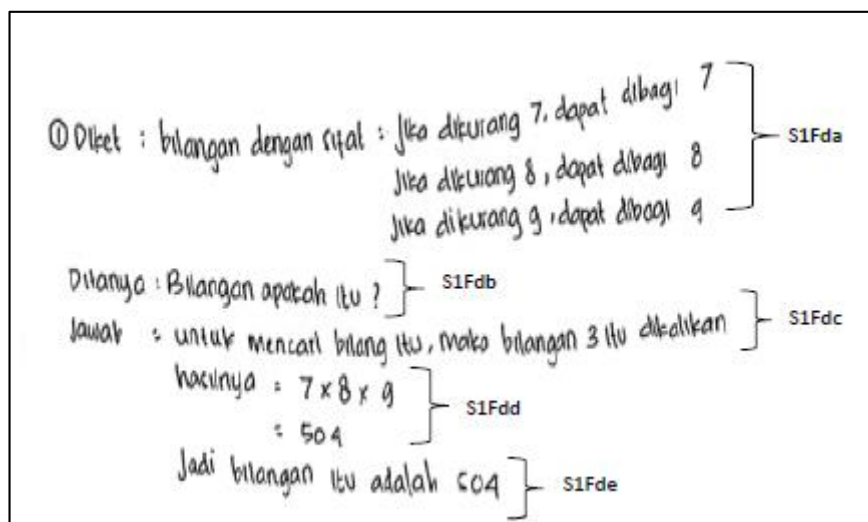 ① Diket : bilangan dengan sifat : Jika dikurang 7, dapat dibagi 7
Jika dikurang 8, dapat dibagi 8
Jika dikurang 9, dapat dibagi 9
S1Fda
Ditanya : Bilangan apakah itu ?
S1Fdb
Jawab : untuk mencari bilang itu, maka bilangan 3 itu dikalikan
S1Fdc
hasilnya = 7 x 8 x 9
= 504
S1Fdd
Jadi bilangan itu adalah 504
S1Fde